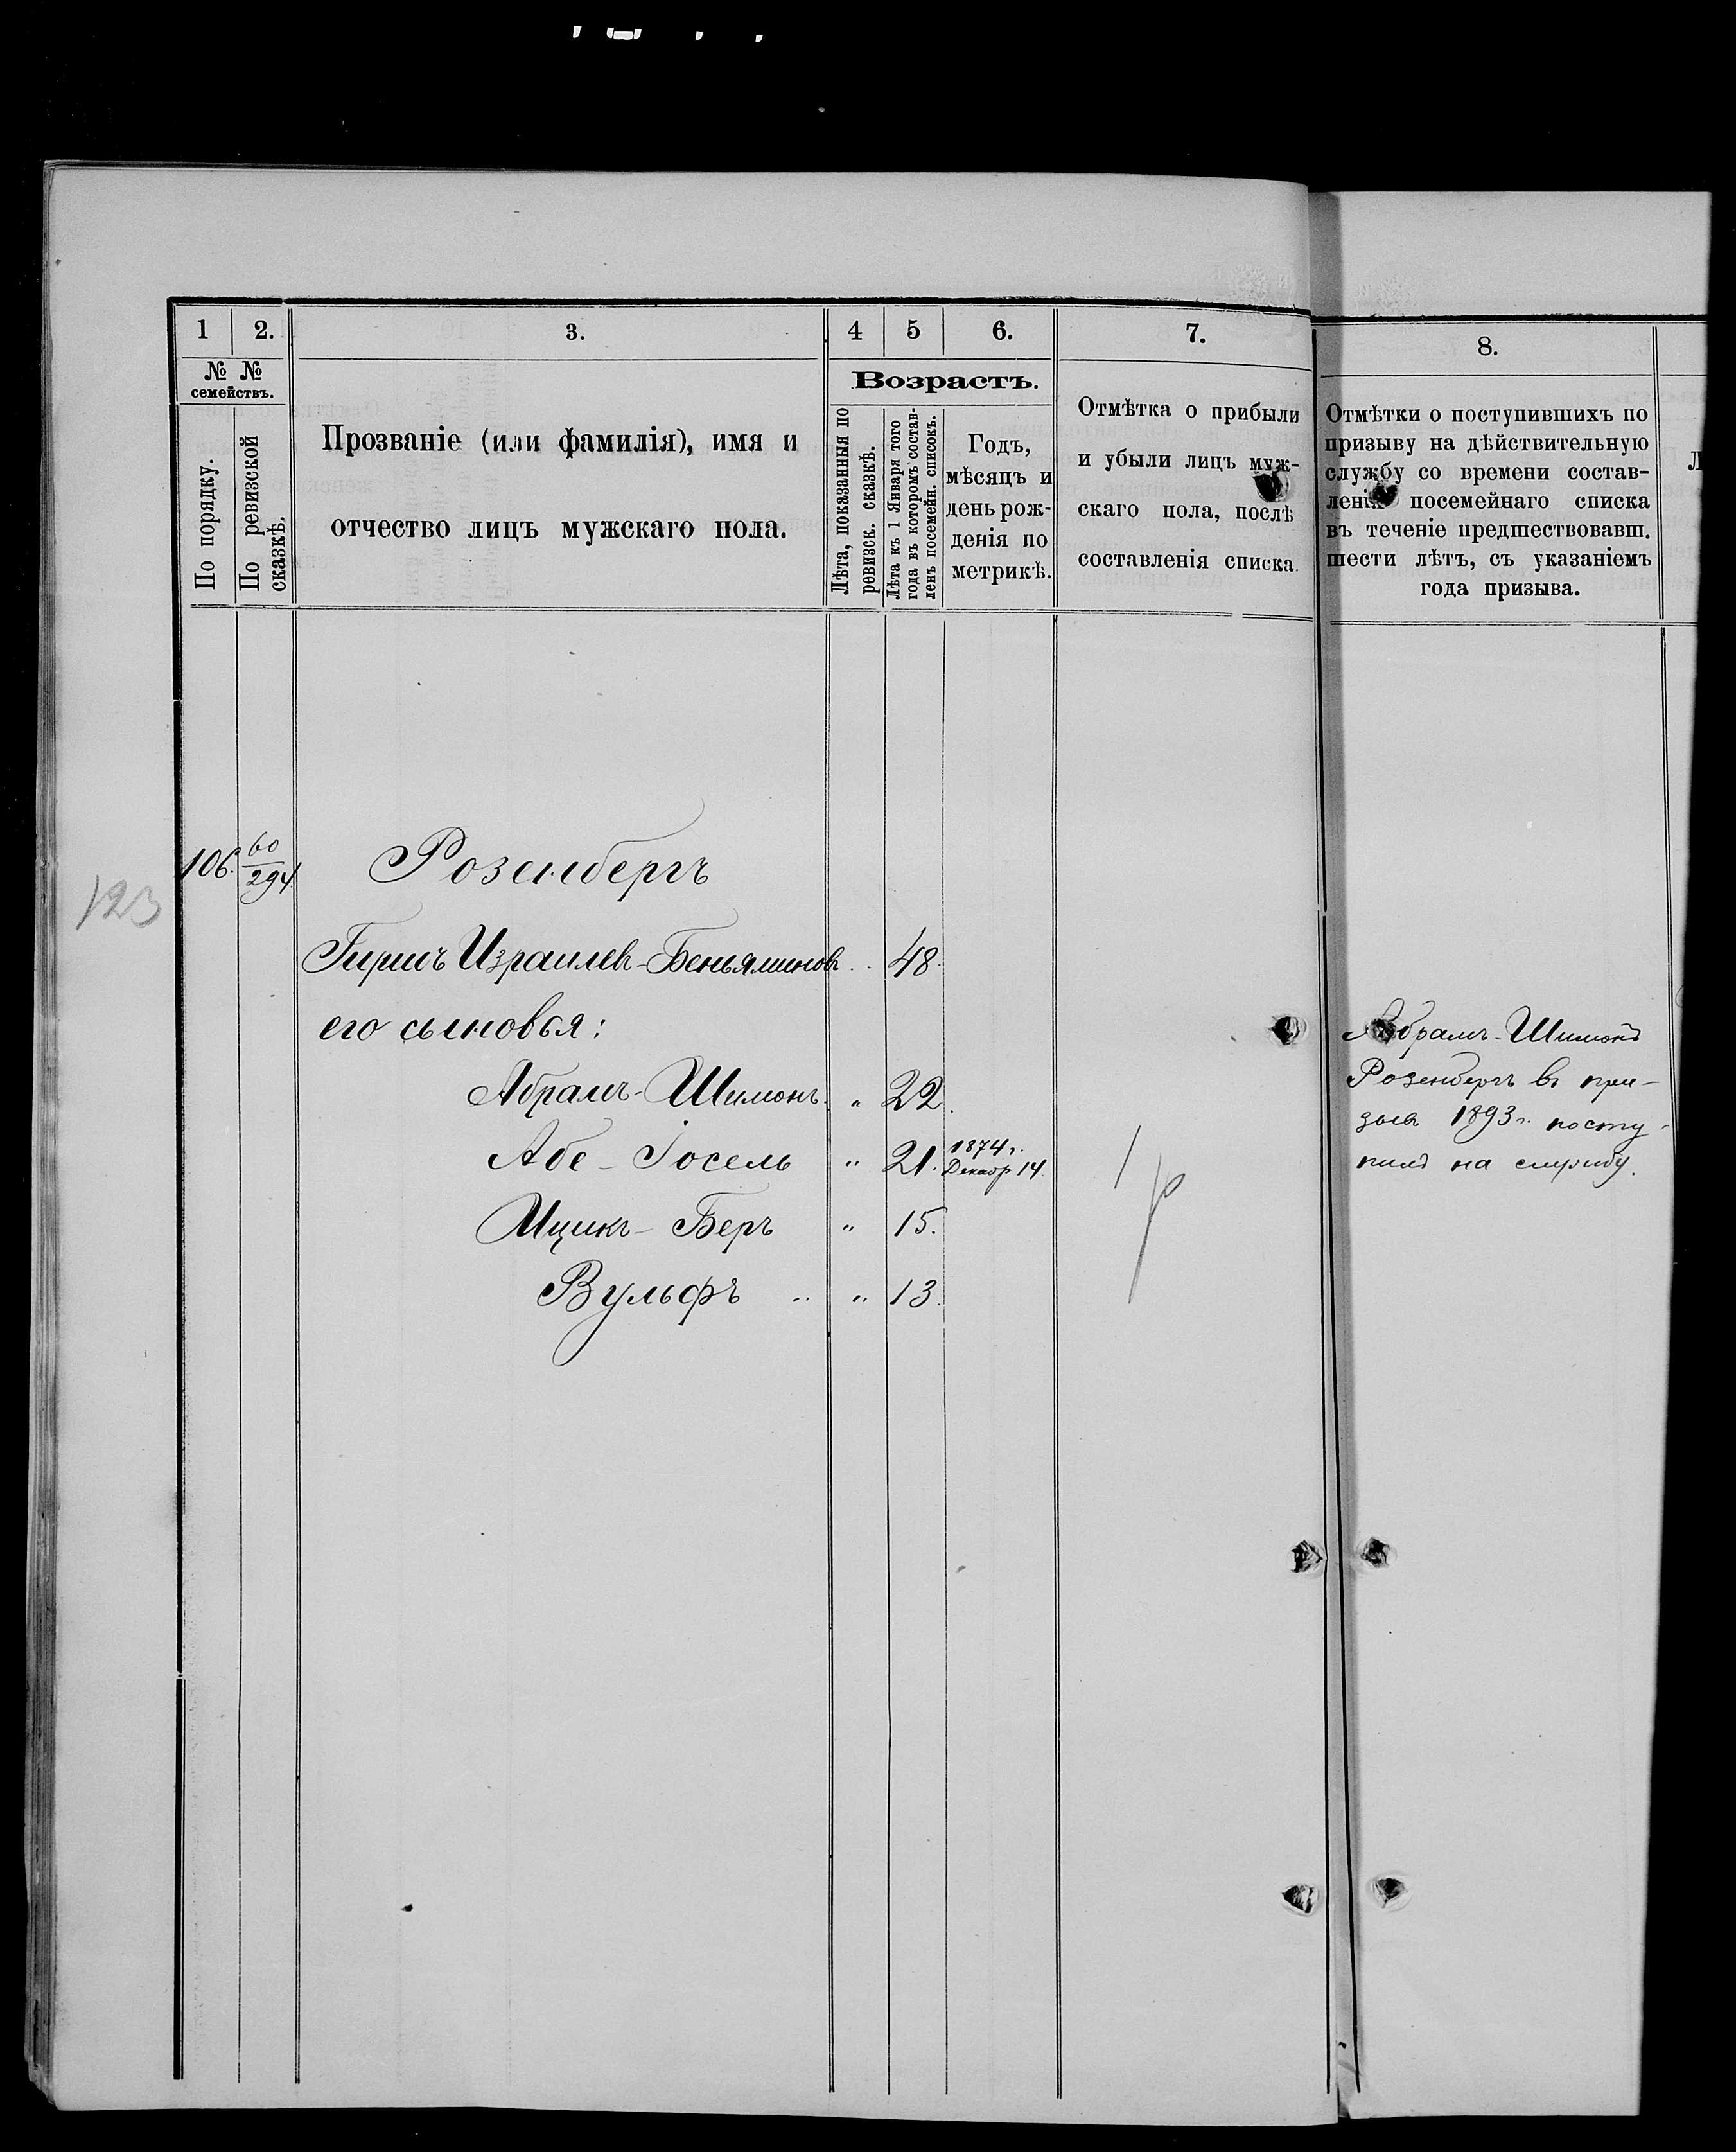 1 2. 3. 4 5 6. 7. 8.
№ №
семействъ.
По порядку.
По ревизской
сказкѣ.
Прозваніе (или фамилія), имя и
отчество лицъ мужскаго пола.
Возрастъ.
Лѣта, показанныя по
ревизск. сказкѣ.
Лѣта къ 1 Января того
года въ которомъ состав-
ленъ посемейн. списокъ.
Годъ,
мѣсяцъ и
день рож-
денія по
метрикѣ.
Отмѣтка о прибыли
и убыли лицъ муж-
скаго пола, послѣ
составленія списка.
Отмѣтки о поступившихъ по
призыву на дѣйствительную
службу со времени состав-
леніи посемейнаго списка
въ теченіе предшествовавш.
шести лѣтъ, съ указаніемъ
года призыва.
123
106. 60/294. Розенбергъ
Гиршъ Израилев-Беньяминовъ .. 48.
его сыновья:
Абрамъ-Шимонъ. „ 22.
Абе-Іосель „ 21. 1874 г. Декабр 14.
Ицикъ-Беръ „ 15.
Вульфъ „ „ 13.
Абрамъ-Шимонъ
Розенбергъ въ при-
зывъ 1893 г. посту-
пилъ на службу.